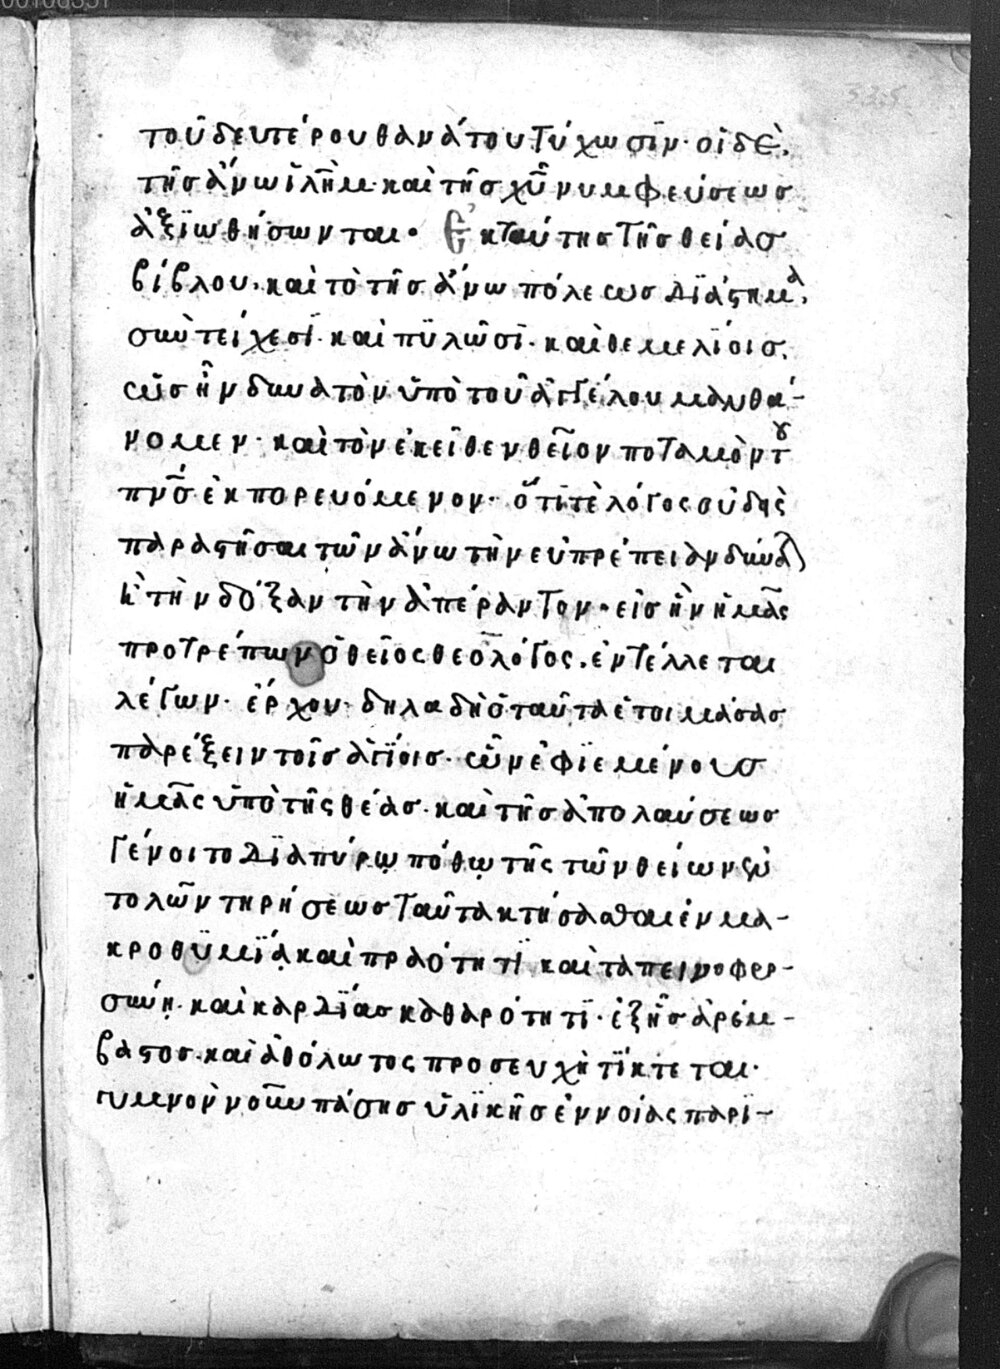 τοῦ δευτέρου θανάτου τύχωσϊν· οἱ δὲ,
τῆς ἄνω ϊλῆμ· καὶ τῆς χῦ νυμφεύσεως
ἀξϊωθήσωνται· Ἐκ ταύτης τῆς θείας
βίβλου, καὶ τὸ τῆς ἄνω πόλεως διάστημα,
σὺν τείχεσϊ· καὶ πϋλῶσϊ· καὶ θεμελίοις,
ὡς ἦν δυνατὸν ὑπὸ τοῦ ἀγγέλου μανθά-
νομεν· καὶ τὸν ἐκεῖθεν θεῖον ποταμὸν τοῦ
πνς ἐκπορευόμενον· ὅτί τὲ λόγος οὐδεὶς
παραστῆσαι τῶν ἄνω τὴν εὐπρέπειαν δύνα
κ τὴν δόξαν τὴν ἀπέραντον· εἰς ἣν ἡμᾶς
προτρέπων ὁ θεῖος θεολόγος, ἐντέλλεται
λέγων· ἔρχου· δηλαδὴ ὁ ταῦτα ἑτοιμάσας
παρέξειν τοῖς ἁγίοις· ὧν ἐφϊεμένους
ἡμᾶς ὑπὸ τῆς θέας· καὶ τῆς ἀπολαύσεως
γένοιτο διαπύρῳ πόθῳ τῆς τῶν θείων ἐν
τολῶν τηρήσεως ταῦτα κτήσασθαι ἐν μα-
κροθϋμίᾳ καὶ πραότητϊ καὶ ταπεινοφρο-
σύνῃ· καὶ καρδίας καθαρότητϊ· ἐξ ἧς ἀρέμ-
βαστος· καὶ ἀθόλωτος προσευχὴ τίκτεται·
γυμνὸν νοῦν πάσης ὑλϊκῆς ἐννοίας παρϊ-